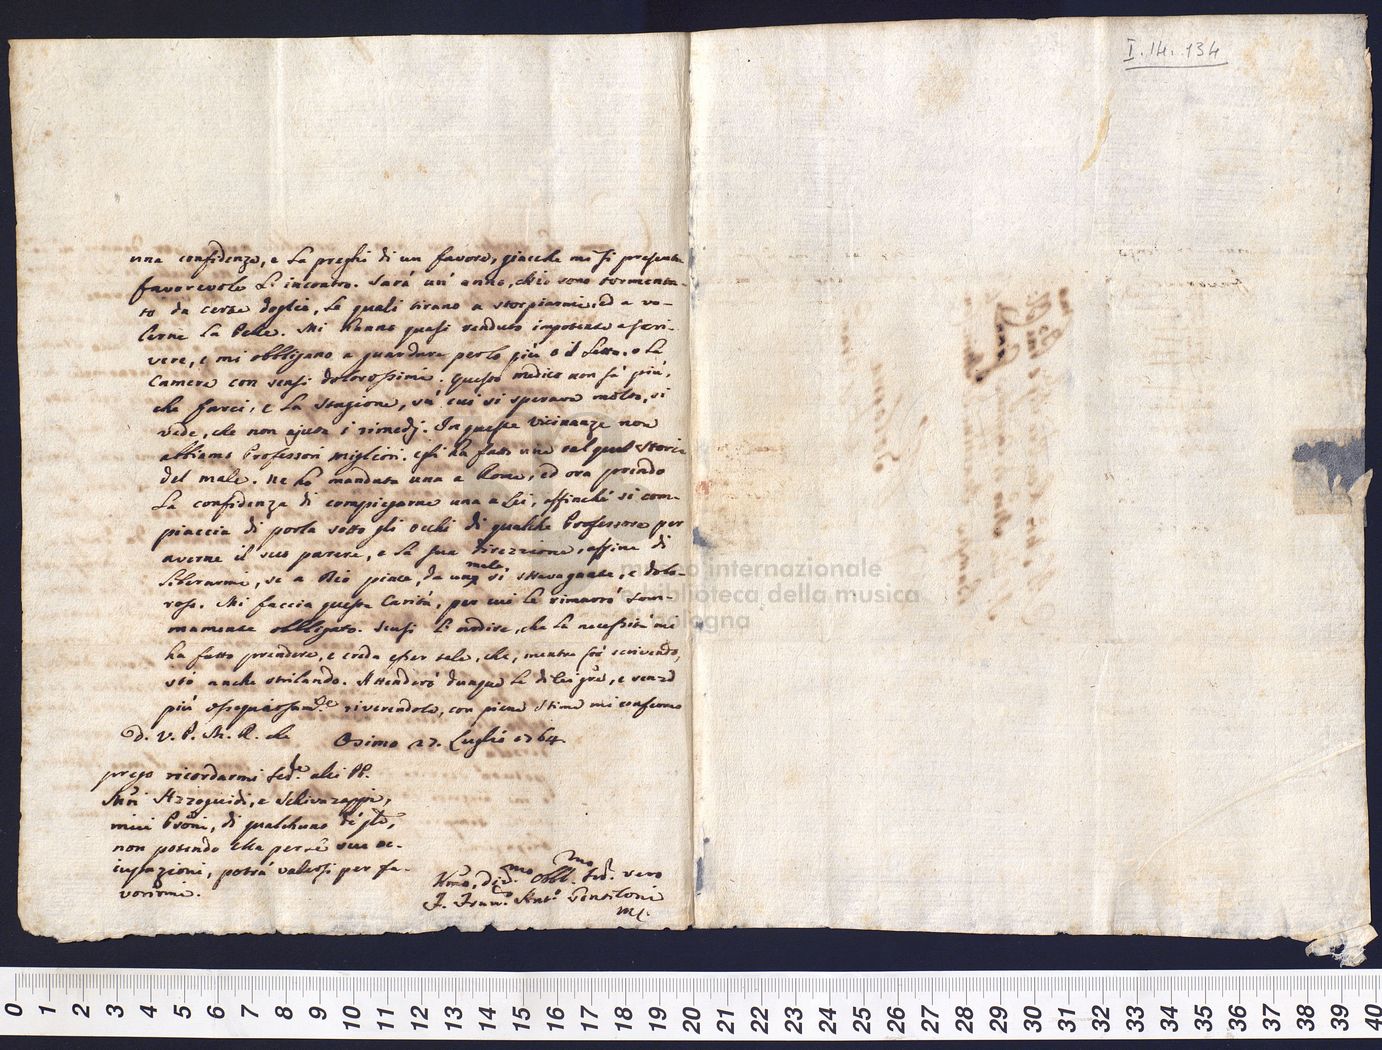 I. 14. 134
una confidenza, e La preghi di un favore, giacche mi si presenta
favorevole L'incontro. Sarà un' anno, ch'io sono tormenta-
to da certe doglie, Le quali tirano a storpiarmi, ed a vo-
lerne La Pelle. Mi hanno quasi renduto impotente a scri-
vere, e mi obbligano a guardare perlo più o il Letto, o La
Camera con sensi dolorosissimi. Questo medico non sà più,
che farci, e La stagione, sù cui si sperava molto, si
vede, che non ajuta i rimedj. In queste vicinanze non
abbiamo Professori migliori. Egli ha fatto una tal qual storia
del male. Ne ho mandata una a Roma, ed ora prendo
La confidenza di compiegarne una a Lei, affinchè si com-
piaccia di porla sotto gli occhi di qualche Professore per
averne il suo parere, e La sua direzzione, affine di
Liberarmi, se a Dio piace, da un male sì stravagante, e dolo-
roso. Mi faccia questa Carità, per cui Le rimarrò som-
mamente obbligato. Scusi L'ardire, che La necessità mi
ha fatto prendere, e creda esser tale, che, mentre stò scrivendo,
stò anche strilando. Attenderò dunque Le di Lei gre, e senza
più ossequiosam.e riverendola, con piena stima mi confermo
D. V. P. M. R. da
Osimo 27. Luglio 1764
prego ricordarmi sed.e alli PP.
Mri Azzoguidi, e Schiavazappi,
miei Proni, di qualchuno de' qli,
non potendo Ella per le sue oc-
cupazioni, potrà valersi per fa-
vorirmi.
Umo, Div.mo Obbl.mo Sed. vero
F. Fran.co Ant.o Pentiloni
mC.
museo internazionale
e biblioteca della musica
di bologna
0 1 2 3 4 5 6 7 8 9 10 11 12 13 14 15 16 17 18 19 20 21 22 23 24 25 26 27 28 29 30 31 32 33 34 35 36 37 38 39 40